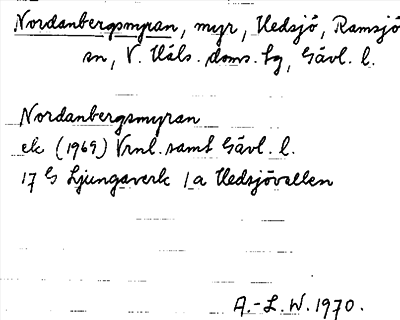 Nordanbergsmyran, myr, Hedsjö, Ramsjö
sn, V. Häls. doms. fg, Gävl. l.
Nordanbergsmyran
ek (1969) Vrnl. samt Gävl. l.
17 G Ljungaverk 1a Hedsjövallen
A.-L. W. 1970.